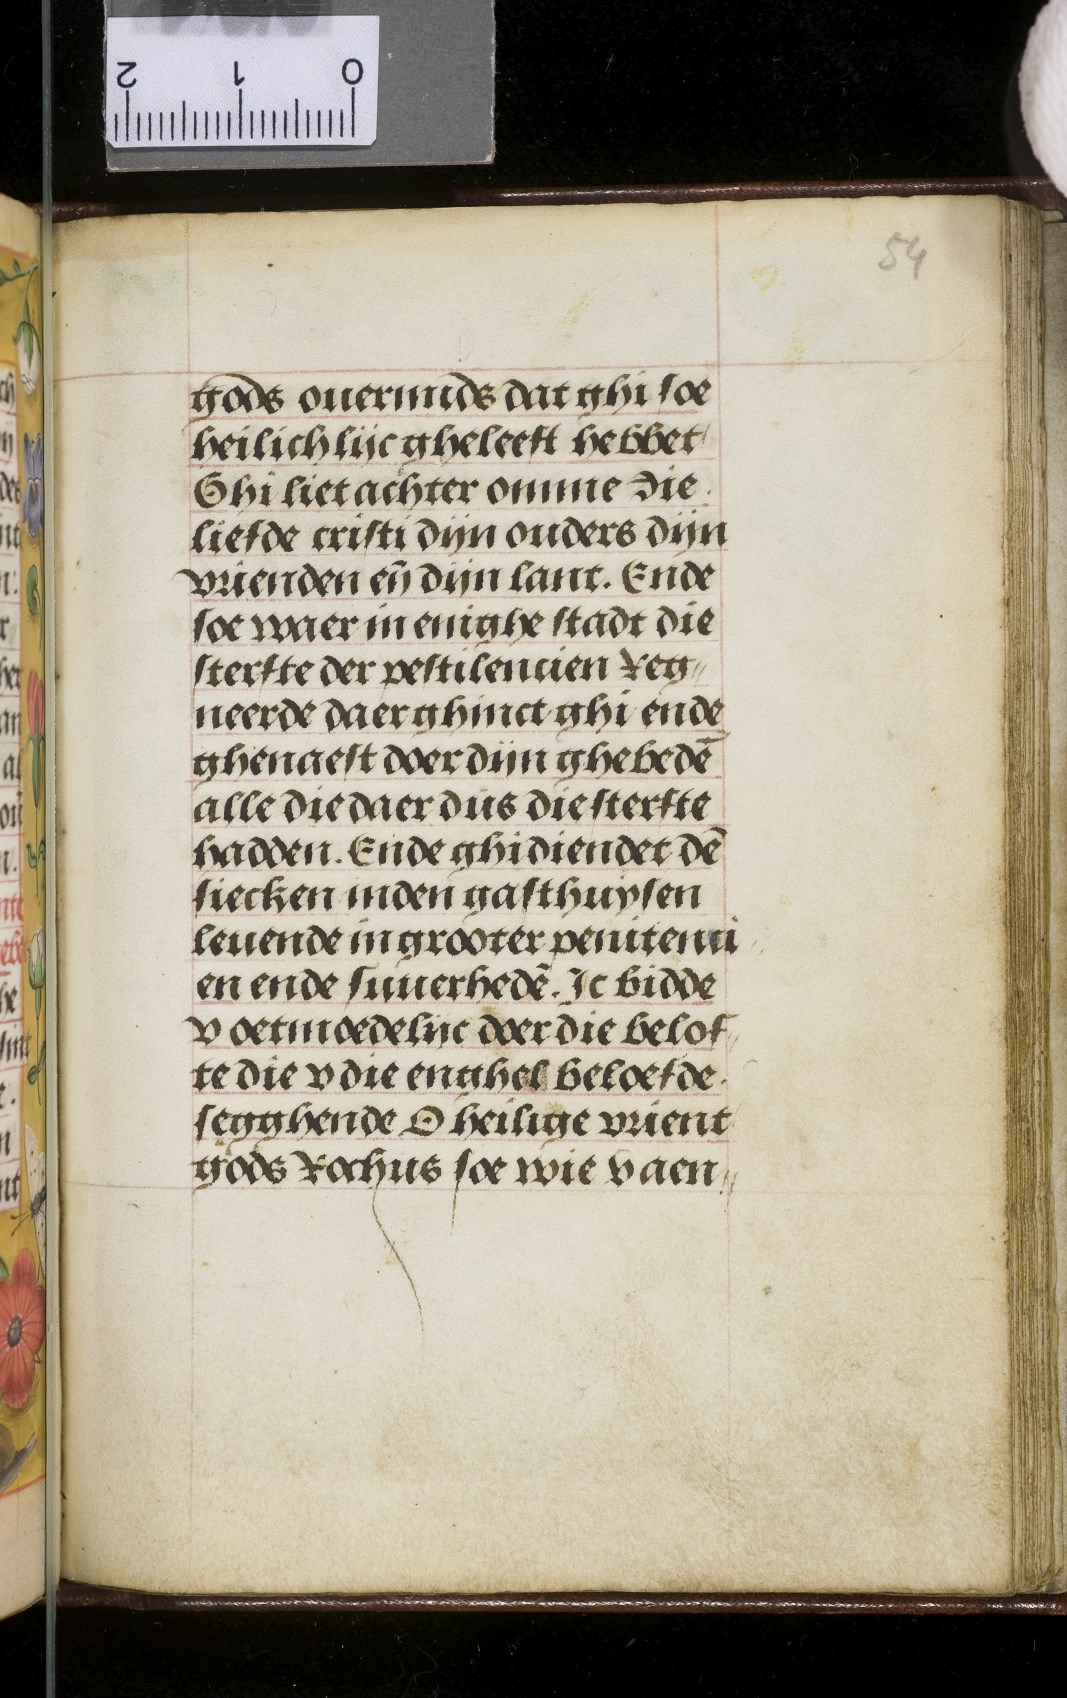 2 1 0
54
gods ouermids dat ghi soe
heilichlijc gheleeft hebbet
Ghi liet achter omme die
liefde cristi dijn ouders dijn
vrienden eñ dijn lant. Ende
soe waer in enighe stadt die
sterfte der pestilencien Reg〃
neerde daer ghinct ghi ende
ghenaest doer dijn ghebedē
alle die daer dus die sterfte
hadden. Ende ghi diendet dē
siecken inden gasthuysen
leuende in grooter penitenci
en ende suuerhedē. Ic bidde
v oetmoedelijc doer die belof〃
te die v die enghel beloefde.
segghende O heilige vrient
gods Rochus soe wie v aen〃